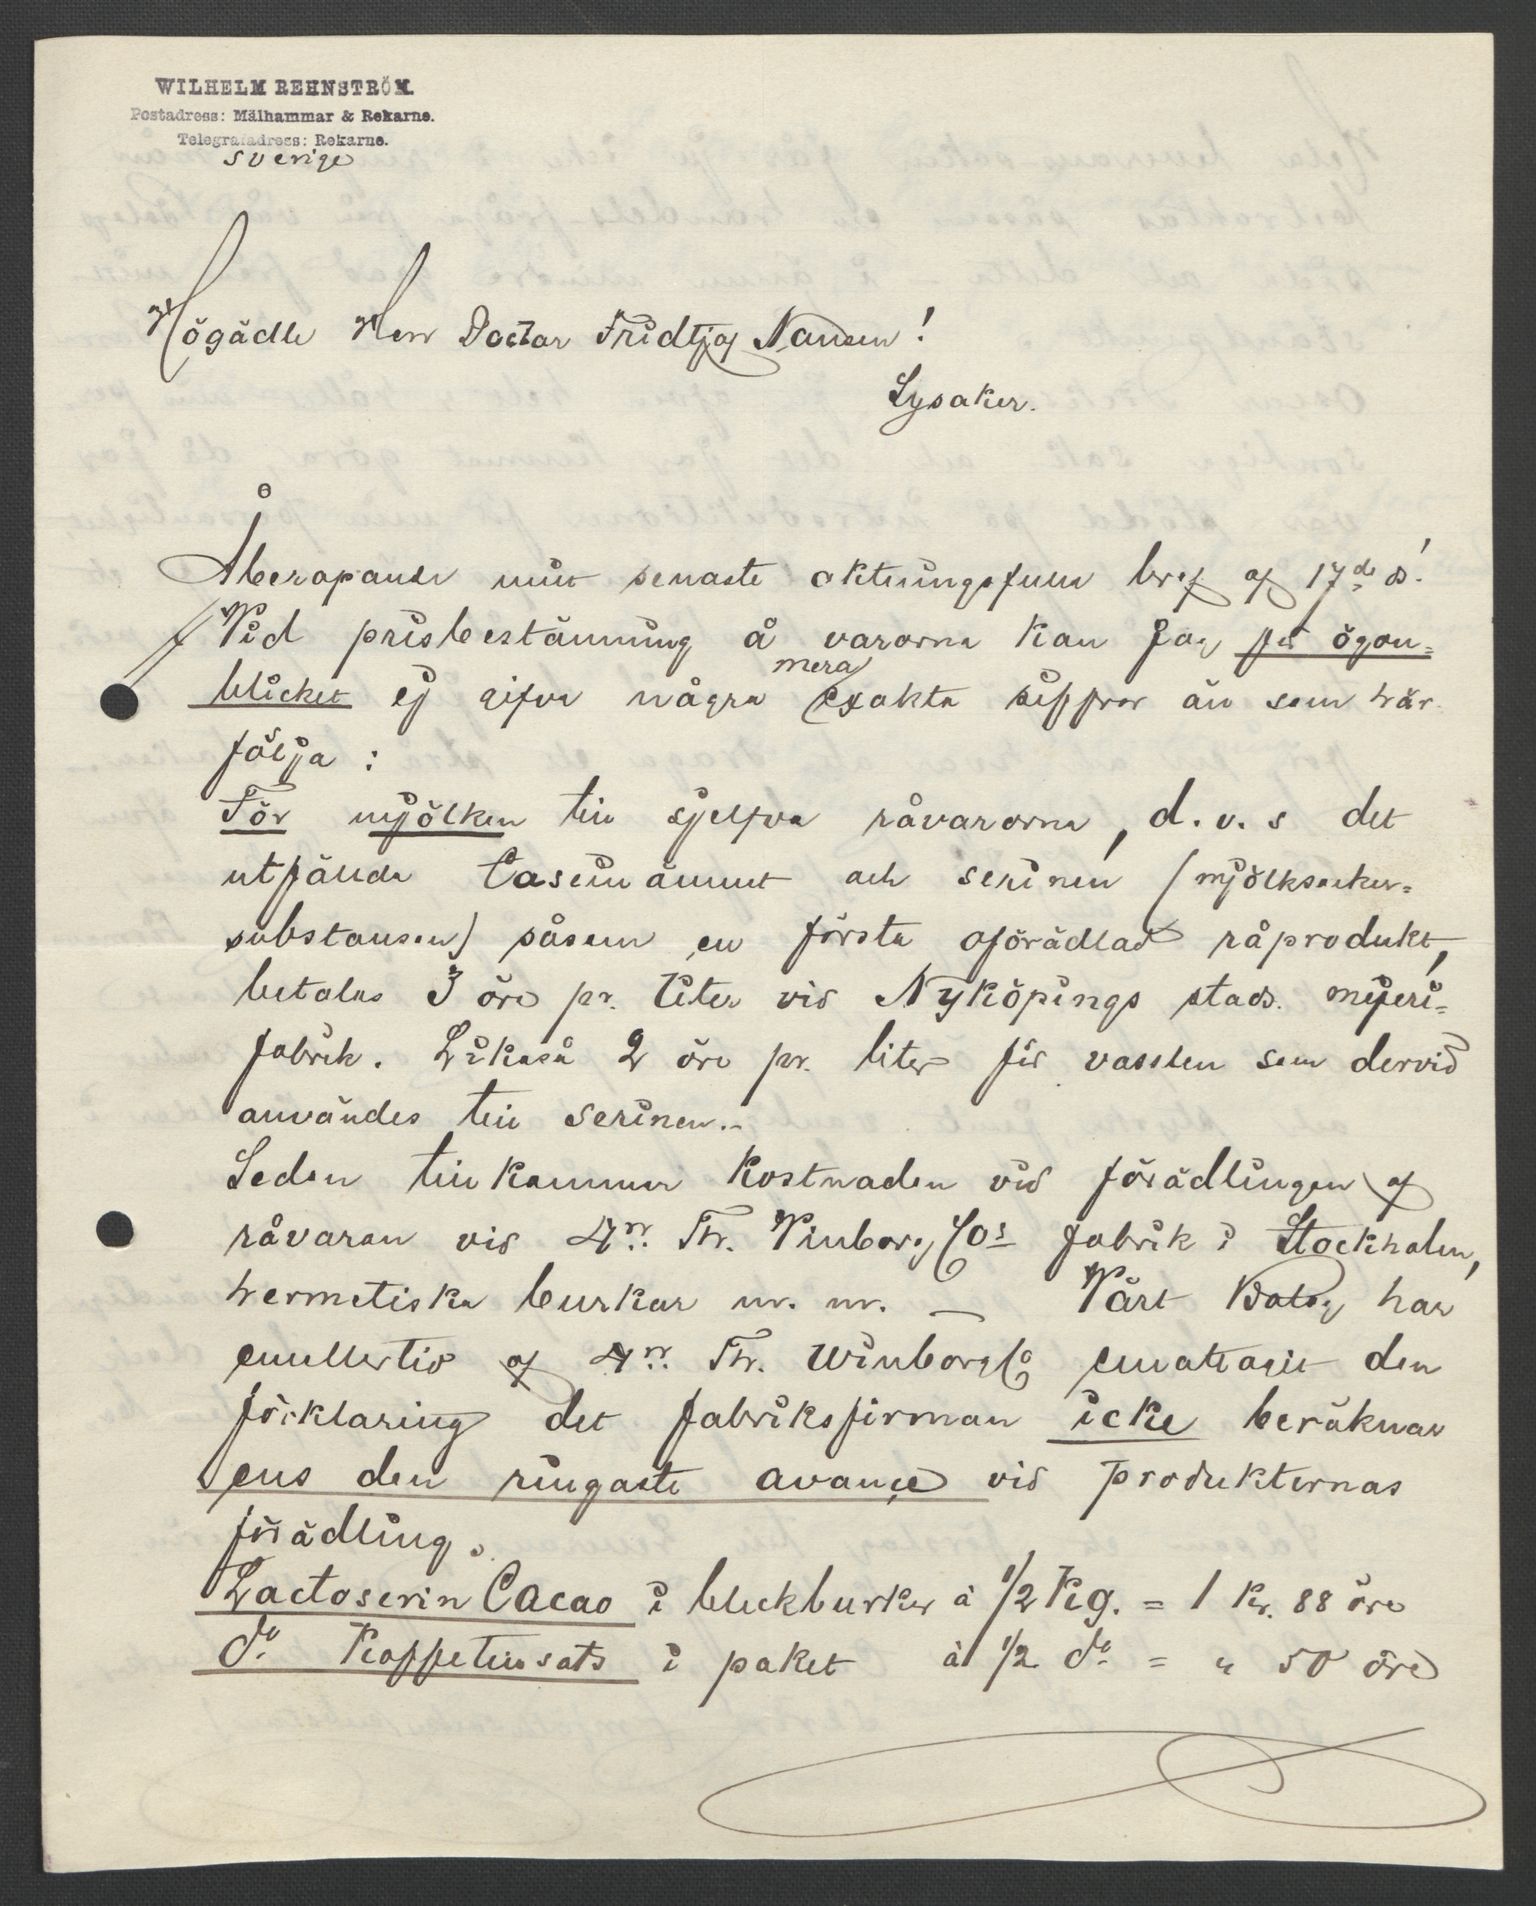 WILHELM REHNSTRÖM.
Postadress: Mälhammar & Rekarne.
Telegrafadress: Rekarne.
Sverige
Högädle Herr Doctor Fridtjof Nansen!
Lysaker.
Åberopande mitt senaste aktningsfulla bref af 17de ds!
Vid prisbestämning å varorna kan jag för ögon=
blicket ej gifva några mera exakta siffror än som här
följa:
För mjölken till sjelfva råvarorna, d.v.s det
utfälda Caseinämnet och serinen (mjölksocker=
substansen) såsom en första oförädlad råprodukt,
betalas 3 öre pr. liter vid Nyköpings stads mijeri=
fabrik. Likaså 2 öre pr. liter för vasslen som dervid
användes till serinen.-
Sedan tillkommer kostnaden vid förädlingen af
råvaran vid Hrr Th. Winborg Cos fabrik i Stockholm,
hermetiska burkar m. m. — Vårt Bolag har
emellertid af Hrr Th. Winborg Co emottagit den
förklaring det fabriksfirman icke beräknar
ens den ringaste avançe vid produkternas
förädling.
Lactoserin Cacao i bleckburkar à 1/2 Kg. = 1 Kr. 88 öre
do Kaffetillsats i paket à 1/2 do = " 50 öre